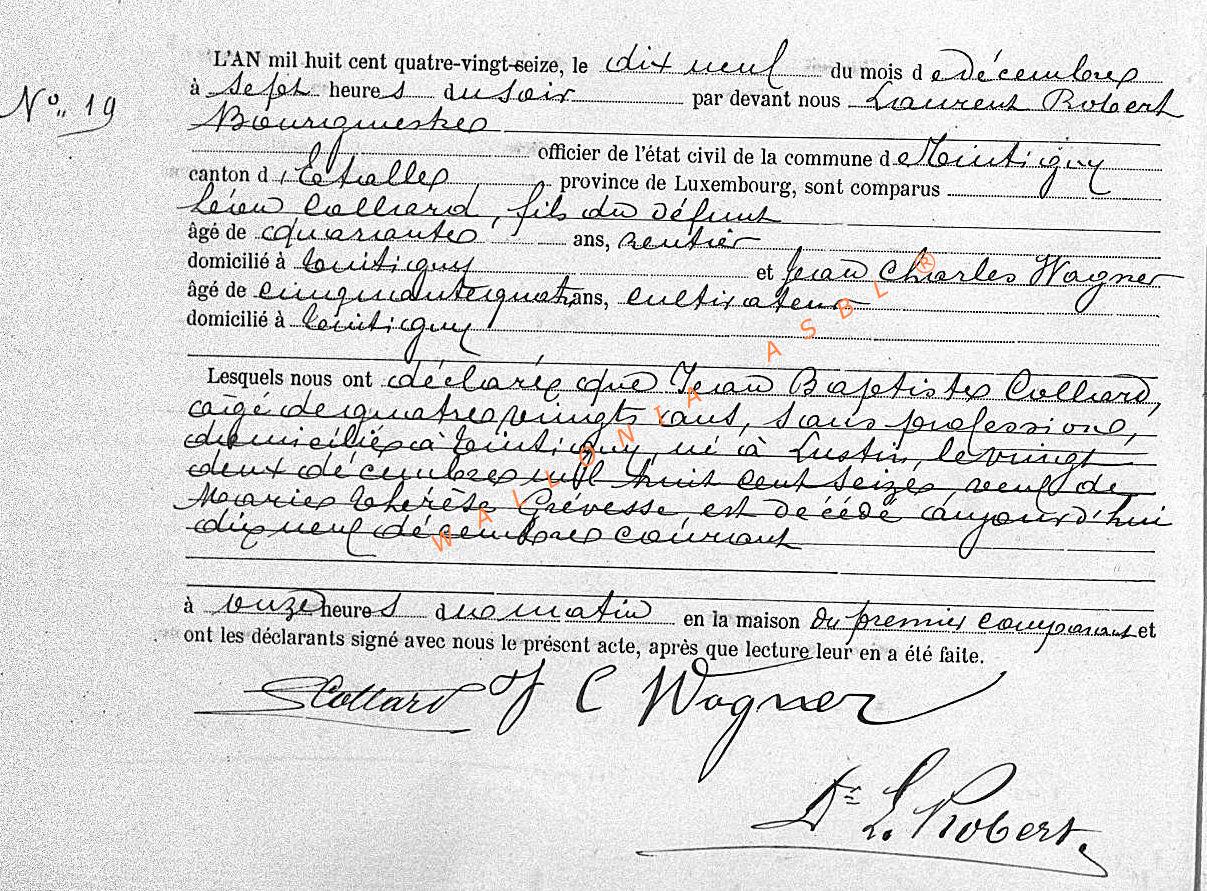 L'AN mil huit cent quatre-vingt-seize, le dix neuf du mois de décembre
No 19
à sept heures du soir par devant nous Laurent Robert
Bourgmestre
officier de l'état civil de la commune de Tintigny
canton d'Etalle, province de Luxembourg, sont comparus
Léon Colliard, fils du défunt
âgé de quarante ans, rentier
domicilié à Tintigny et Jean Charles Wagner
âgé de cinquante quatre ans, cultivateur
domicilié à Tintigny
Lesquels nous ont déclaré que Jean Baptiste Colliard,
âgé de quatre vingts ans, sans profession,
domicilié à Tintigny, né à Lustin, le vingt
deux décembre mil huit cent seize, veuf de
Marie Thérèse Grévesse, est décédé aujourd'hui
dix neuf décembre courant
à onze heures du matin en la maison du premier comparant et
ont les déclarants signé avec nous le présent acte, après que lecture leur en a été faite.
Collard J C Wagner
Dr L. Robert.
WALLONIA ASBL ®